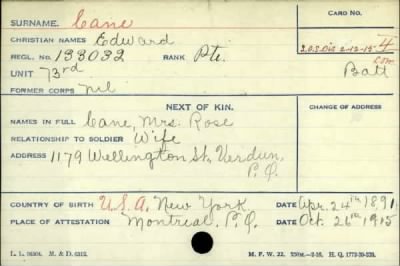 SURNAME. Cane CARD NO.
CHRISTIAN NAMES Edward
REGL. NO. 133032 RANK Pte. S.O.S. Dis 2-12-15 4
Com
UNIT 73rd Batt
FORMER CORPS nil
NEXT OF KIN. CHANGE OF ADDRESS
NAMES IN FULL Cane, Mrs. Rose
RELATIONSHIP TO SOLDIER Wife
ADDRESS 1179 Wellington St, Verdun,
P.Q.
COUNTRY OF BIRTH U.S.A. New York. DATE Apr. 24th 1891
PLACE OF ATTESTATION Montreal, P.Q. DATE Oct. 26th 1915
M. F. W. 22.